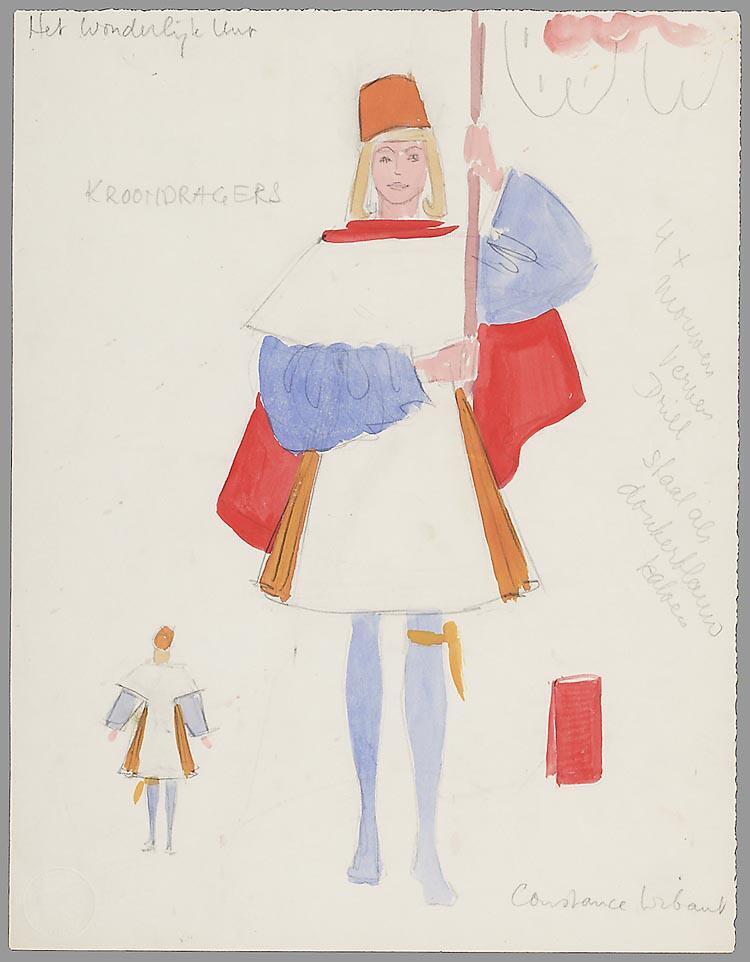 Het Wonderlijk Uur
KROONDRAGERS
4 x mouwen
verven
Drill
staal als
donkerblauw
Constance Wibaut